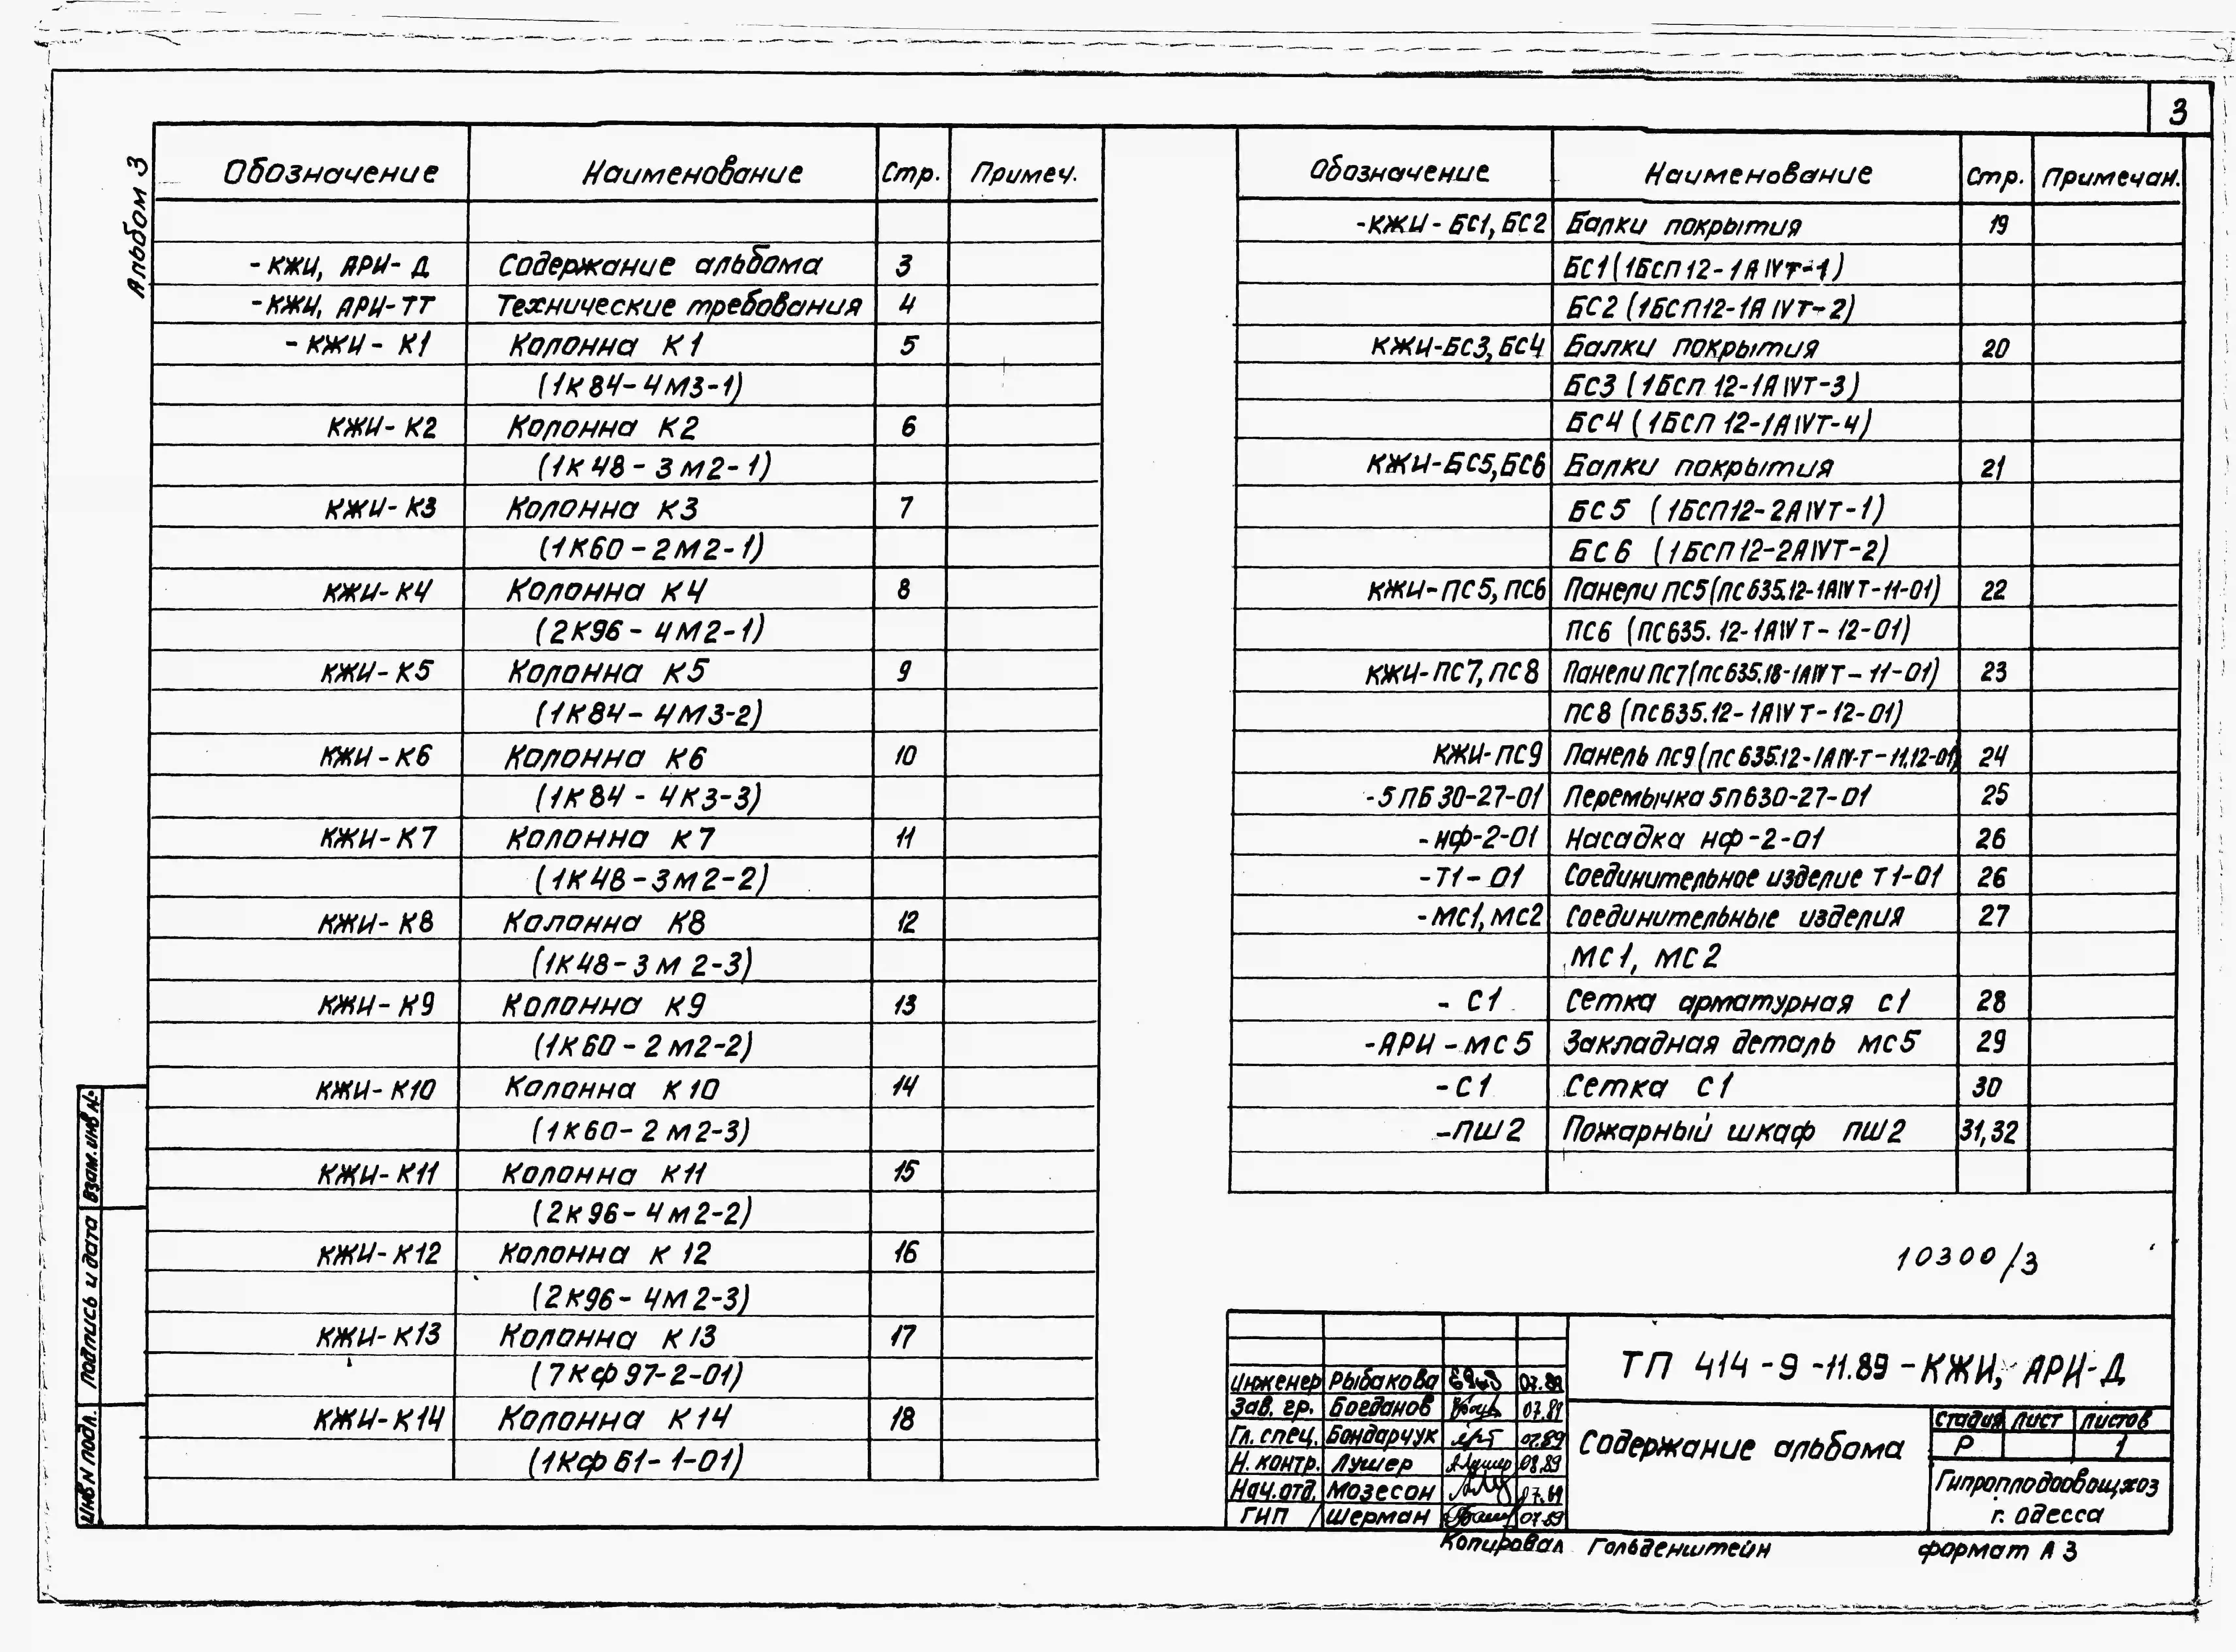 3
Альбом 3
Обозначение Наименование Стр. Примеч.
-КЖИ, АРИ-Д Содержание альбома 3
-КЖИ, АРИ-ТТ Технические требования 4
-КЖИ-К1 Колонна К1 5
(1К84-4М3-1)
КЖИ-К2 Колонна К2 6
(1К48-3М2-1)
КЖИ-К3 Колонна К3 7
(1К60-2М2-1)
КЖИ-К4 Колонна К4 8
(2К96-4М2-1)
КЖИ-К5 Колонна К5 9
(1К84-4М3-2)
КЖИ-К6 Колонна К6 10
(1К84-4К3-3)
КЖИ-К7 Колонна К7 11
(1К48-3М2-2)
КЖИ-К8 Колонна К8 12
(1К48-3М2-3)
КЖИ-К9 Колонна К9 13
(1К60-2М2-2)
КЖИ-К10 Колонна К10 14
(1К60-2М2-3)
КЖИ-К11 Колонна К11 15
(2К96-4М2-2)
КЖИ-К12 Колонна К12 16
(2К96-4М2-3)
КЖИ-К13 Колонна К13 17
(7КФ97-2-01)
КЖИ-К14 Колонна К14 18
(1КФ61-1-01)
Обозначение Наименование Стр. Примечан.
-КЖИ-БС1, БС2 Балки покрытия 19
БС1 (1БСП12-1АIVТ-1)
БС2 (1БСП12-1АIVТ-2)
КЖИ-БС3, БС4 Балки покрытия 20
БС3 (1БСП12-1АIVТ-3)
БС4 (1БСП12-1АIVТ-4)
КЖИ-БС5, БС6 Балки покрытия 21
БС5 (1БСП12-2АIVТ-1)
БС6 (1БСП12-2АIVТ-2)
КЖИ-ПС5, ПС6 Панели ПС5 (ПС635.12-1АIVТ-11-01) 22
ПС6 (ПС635.12-1АIVТ-12-01)
КЖИ-ПС7, ПС8 Панели ПС7 (ПС635.18-1АIVТ-11-01) 23
ПС8 (ПС635.12-1АIVТ-12-01)
КЖИ-ПС9 Панель ПС9 (ПС635.12-1АIV-Т-11,12-01) 24
-5ПБ30-27-01 Перемычка 5ПБ30-27-01 25
-НФ-2-01 Насадка НФ-2-01 26
-Т1-01 Соединительное изделие Т1-01 26
-МС1, МС2 Соединительные изделия 27
МС1, МС2
-С1 Сетка арматурная С1 28
-АРИ-МС5 Закладная деталь МС5 29
-С1 Сетка С1 30
-ПШ2 Пожарный шкаф ПШ2 31,32
10300/3
Инв N подл. Подпись и дата Взам. инв №
Инженер Рыбакова 07.89
Зав. гр. Богданов 07.89
Гл. спец. Бондарчук 07.89
Н. контр. Лушер 08.89
Нач. отд. Мозесон 07.89
ГИП Шерман 07.89
ТП 414-9-11.89-КЖИ, АРИ-Д
Содержание альбома
Стадия Лист Листов
Р 1
Гипроплодоовощхоз
г. Одесса
Копировал Гольденштейн формат А3